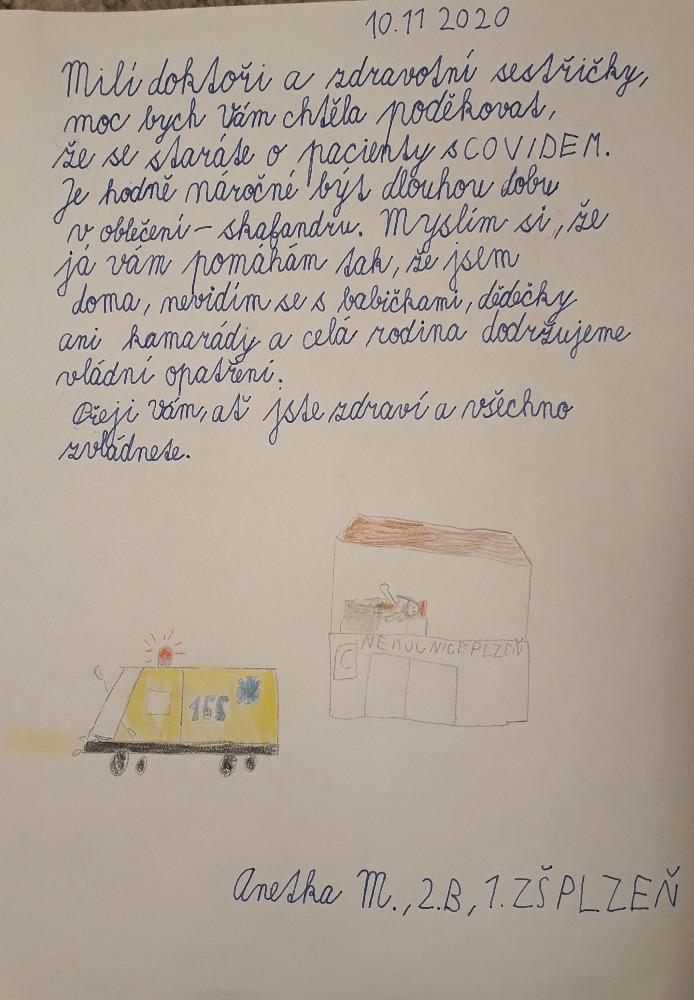 10.11 2020
Milí doktoři a zdravotní sestřičky,
moc bych Vám chtěla poděkovat,
že se staráte o pacienty s COVIDEM.
Je hodně náročné být dlouhou dobu
v oblečení – skafandru. Myslím si, že
já vám pomáhám tak, že jsem
doma, nevidím se s babičkami, dědečky
ani kamarády a celá rodina dodržujeme
vládní opatření.
Přeji Vám, ať jste zdraví a všechno
zvládnete.
NEMOCNICE PLZEŇ
155
Anetka M., 2.B, 1. ZŠ PLZEŇ